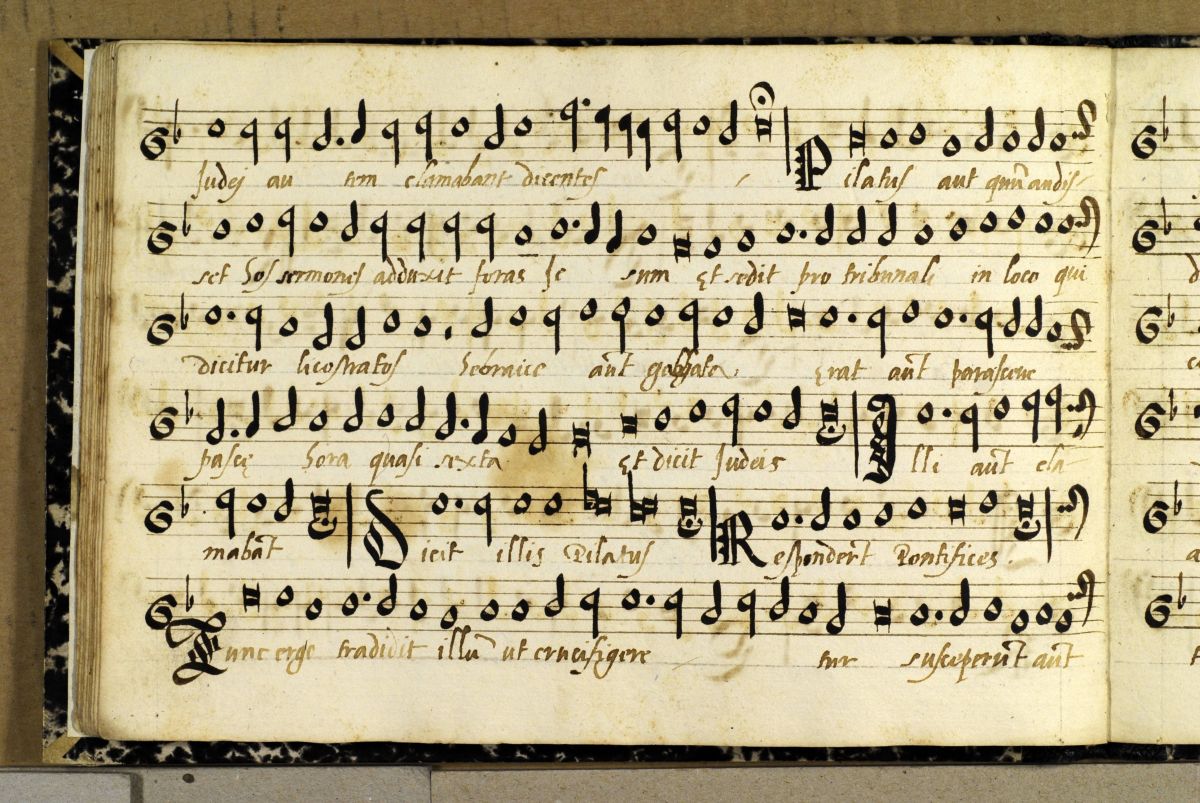 Judej au tem clamabant dicentes Pilatus aut qum̄ audis
set hos sermones adduxit foras Je sum Et sedit pro tribunali in loco qui
dicitur licostratos hebraice aūt gabbata Erat aūt parasceue
pascę hora quasi sexta Et dicit Judeis Illi aūt cla
mabāt Dicit illis Pilatus Respōderūt Pontifices.
Tunc ergo tradidit illū ut crucifigere tur susceperūt aūt